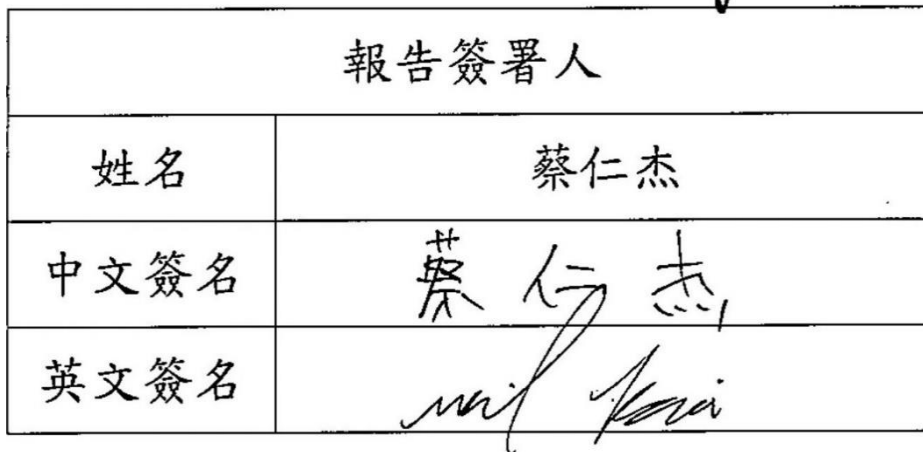 報告簽署人
姓名 蔡仁杰
中文簽名 蔡仁杰
英文簽名